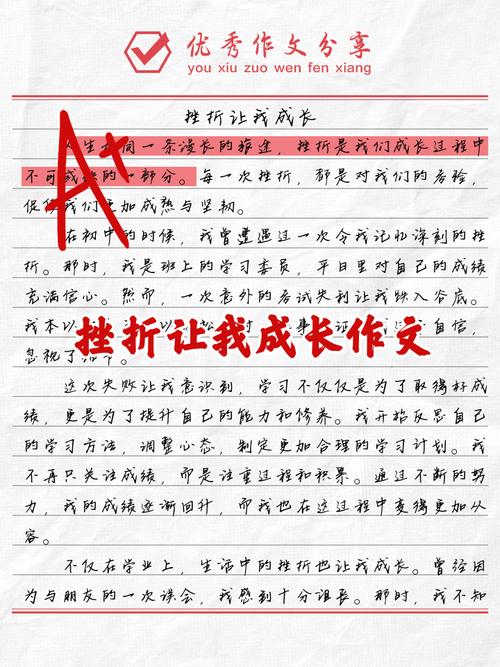 优秀作文分享
you xiu zuo wen fen xiang
挫折让我成长
A+
人生如同一条漫长的旅途，挫折是我们成长过程中
不可或缺的一部分。每一次挫折，都是对我们的考验，
促使我们更加成熟与坚韧。
在初中的时候，我曾遭遇过一次令我记忆深刻的挫
折。那时，我是班上的学习委员，平日里对自己的成绩
充满信心。然而，一次意外的考试失利让我跌入谷底。
我本以 自信，
挫折让我成长作文
忽视了
这次失败让我意识到，学习不仅仅是为了取得好成
绩，更是为了提升自己的能力和修养。我开始反思自己
的学习方法，调整心态，制定更加合理的学习计划。我
不再只关注成绩，而是注重过程和积累。通过不断的努
力，我的成绩逐渐回升，而我也在这过程中变得更加从
容。
不仅在学业上，生活中的挫折也让我成长。曾经因
为与朋友的一次误会，我感到十分沮丧。那时，我不知